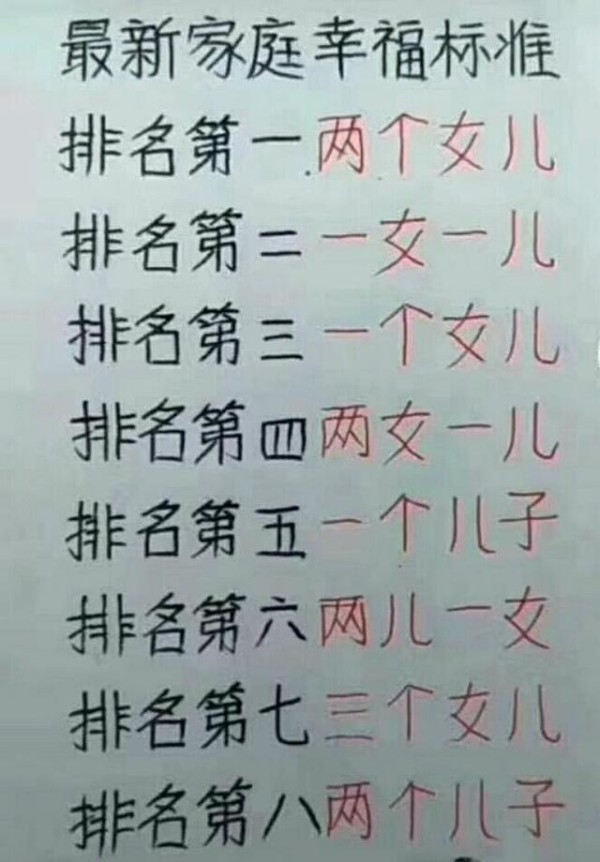 最新家庭幸福标准
排名第一.两个女儿
排名第二一女一儿
排名第三一个女儿
排名第四两女一儿
排名第五一个儿子
排名第六两儿一女
排名第七三个女儿
排名第八两个儿子